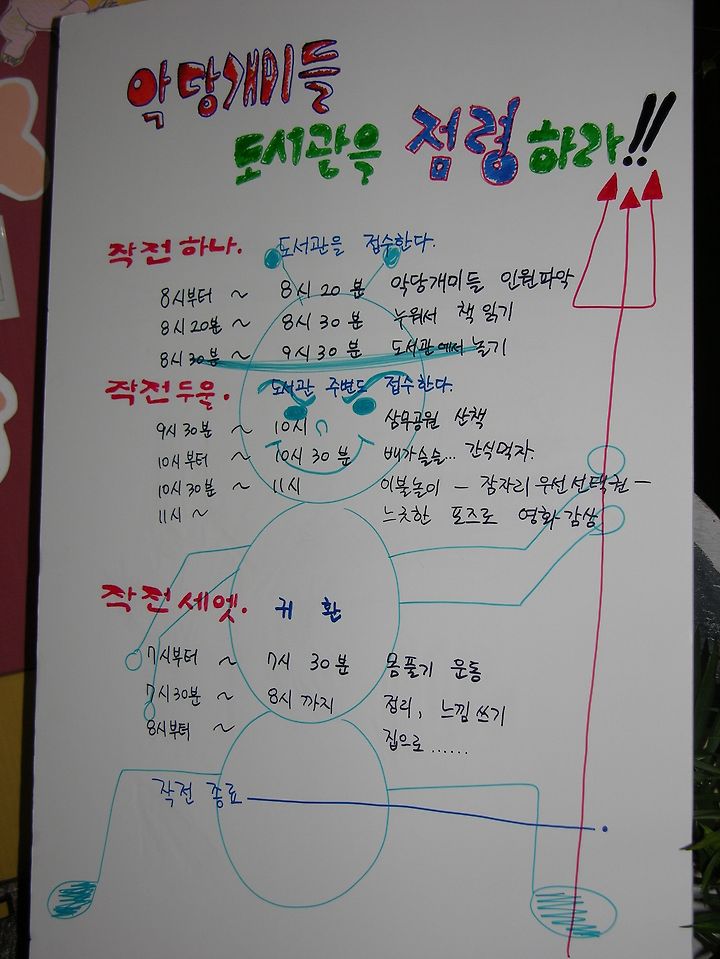 악당개미들
도서관을 점령하라!!
작전하나. 도서관을 접수한다.
8시부터 ~ 8시 20분 악당개미들 인원파악
8시 20분 ~ 8시 30분 누워서 책 읽기
8시 30분 ~ 9시 30분 도서관에서 놀기
작전두울. 도서관 주변도 접수한다.
9시 30분 ~ 10시 삼무공원 산책
10시부터 ~ 10시 30분 배가슬슬... 간식먹자.
10시 30분 ~ 11시 이불놀이 - 잠자리 우선선택권 -
11시 ~ 느긋한 포즈로 영화감상
작전세엣. 귀환
7시부터 ~ 7시 30분 몸풀기 운동
7시 30분 ~ 8시까지 정리, 느낌쓰기
8시부터 ~ 집으로......
작전 종료